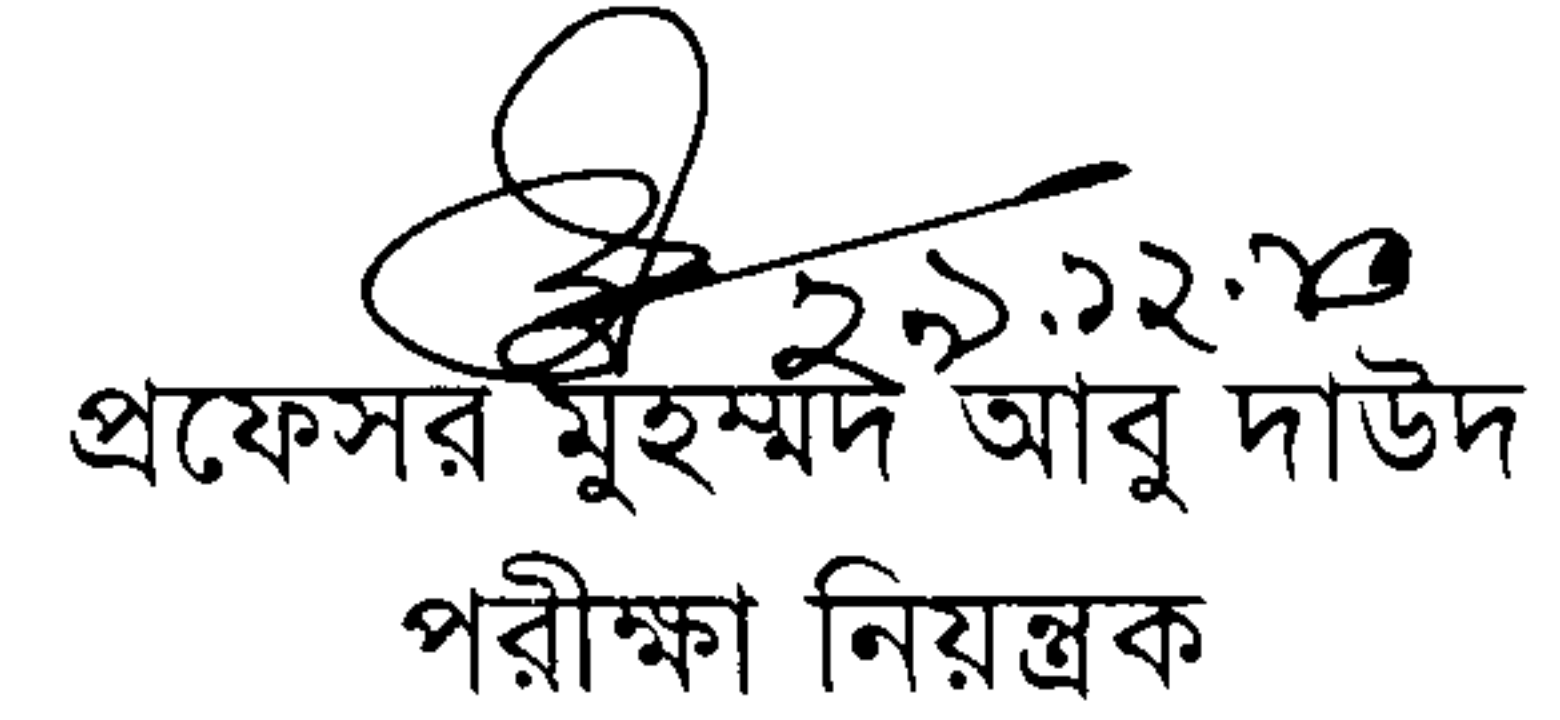 ২৯.১২.২০
প্রফেসর মুহম্মদ আবু দাউদ
পরীক্ষা নিয়ন্ত্রক